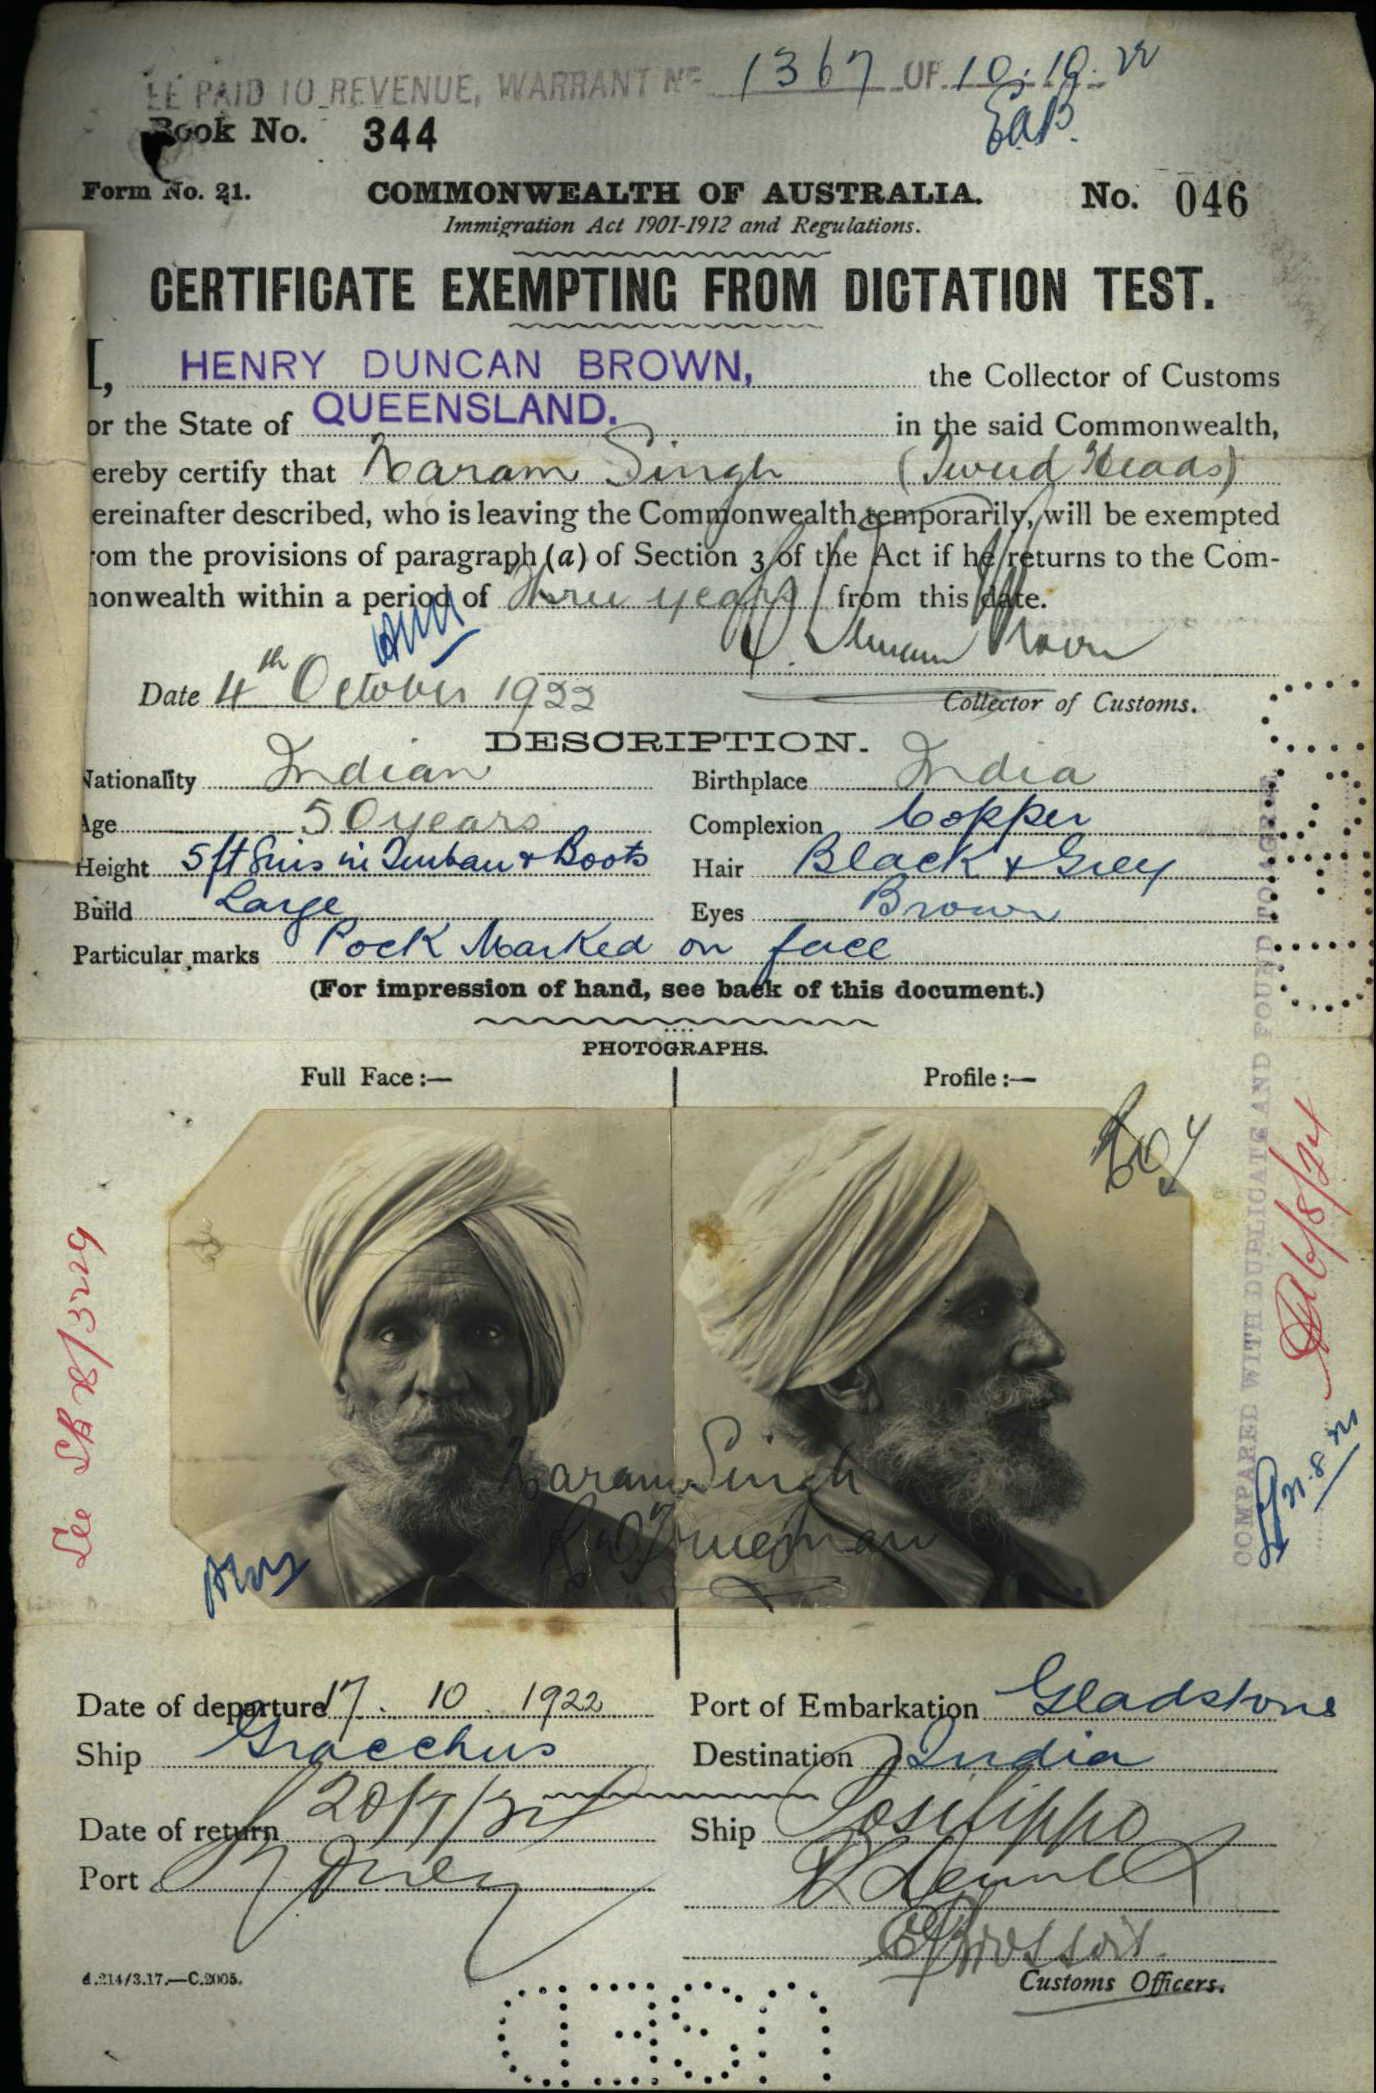 FEE PAID TO REVENUE, WARRANT No 1367 OF 10.10.22
EaB.
Book No. 344
Form No. 21. COMMONWEALTH OF AUSTRALIA. No. 046
Immigration Act 1901-1912 and Regulations.
CERTIFICATE EXEMPTING FROM DICTATION TEST.
I, HENRY DUNCAN BROWN, the Collector of Customs
or the State of QUEENSLAND. in the said Commonwealth,
ereby certify that Karam Singh (Tweed Heads)
ereinafter described, who is leaving the Commonwealth temporarily, will be exempted
rom the provisions of paragraph (a) of Section 3 of the Act if he returns to the Com-
monwealth within a period of Three years from this date.
H. Duncan Brown
Date 4th October 1922 Collector of Customs.
DESCRIPTION.
Nationality Indian Birthplace India
Age 50 years Complexion Copper
Height 5ft 8ins in Turban & Boots Hair Black & Grey
Build Large Eyes Brown
Particular marks Pock Marked on face
(For impression of hand, see back of this document.)
PHOTOGRAPHS.
Full Face:— Profile:—
Karam Singh
COMPARED WITH DUPLICATE AND FOUND TO AGREE
Date of departure 17. 10. 1922 Port of Embarkation Gladstone
Ship Gracchus Destination India
Date of return 20/7/24 Ship Posilippo
Port Sydney
d.214/3.17.—C.2005. Customs Officers.